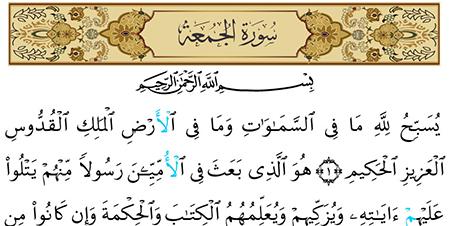 سُورَةُ الجُمُعَةِ
بِسْمِ اللَّهِ الرَّحْمَٰنِ الرَّحِيمِ
يُسَبِّحُ لِلَّهِ مَا فِى السَّمَـٰوَٰتِ وَمَا فِى الْأَرْضِ الْمَلِكِ الْقُدُّوسِ
الْعَزِيزِ الْحَكِيمِ ﴿١﴾ هُوَ الَّذِى بَعَثَ فِى الْأُمِّيِّـۧنَ رَسُولاً مِّنْهُمْ يَتْلُواْ
عَلَيْهِمْ ءَايَـٰتِهِۦ وَيُزَكِّيهِمْ وَيُعَلِّمُهُمُ الْكِتَـٰبَ وَالْحِكْمَةَ وَإِن كَانُواْ مِن